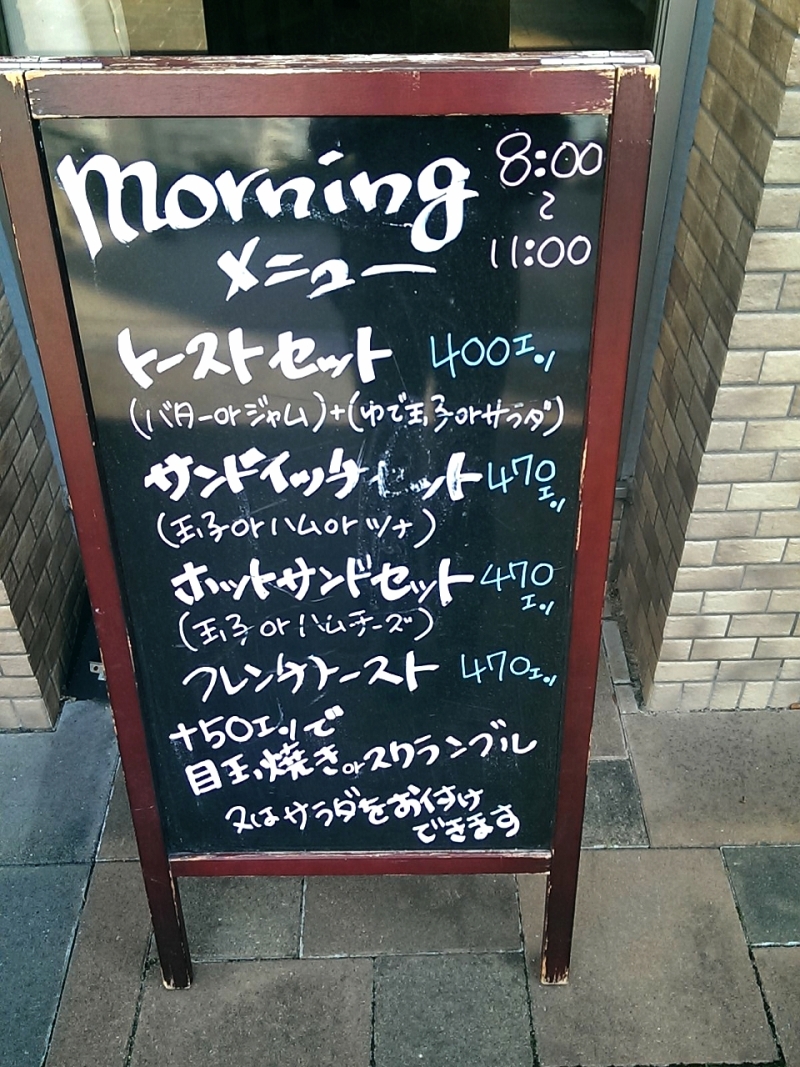 Morning 8:00
〜
メニュー 11:00
トーストセット 400エン
(バターorジャム)+(ゆで玉子orサラダ)
サンドイッチセット 470
エン
(玉子orハムorツナ)
ホットサンドセット 470
エン
(玉子orハムチーズ)
フレンチトースト 470エン
+50エンで
目玉焼きorスクランブル
又はサラダをお付け
できます